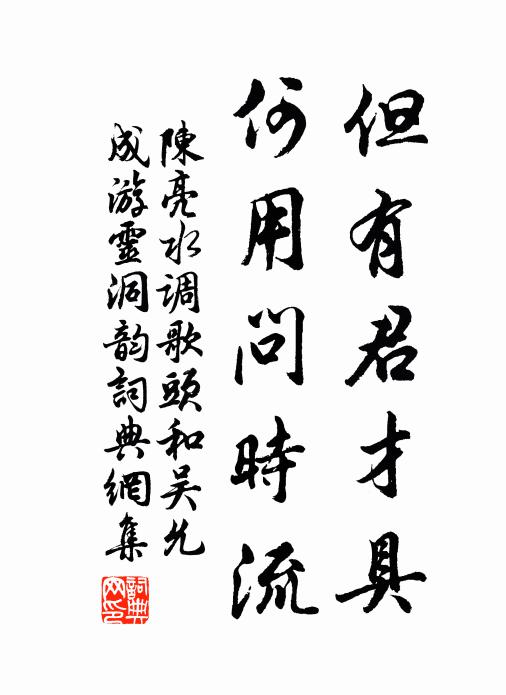 但有君才具
何用問時流
陳亮水調歌頭和吴允
成游靈洞韵詞典網集
詞典
网印